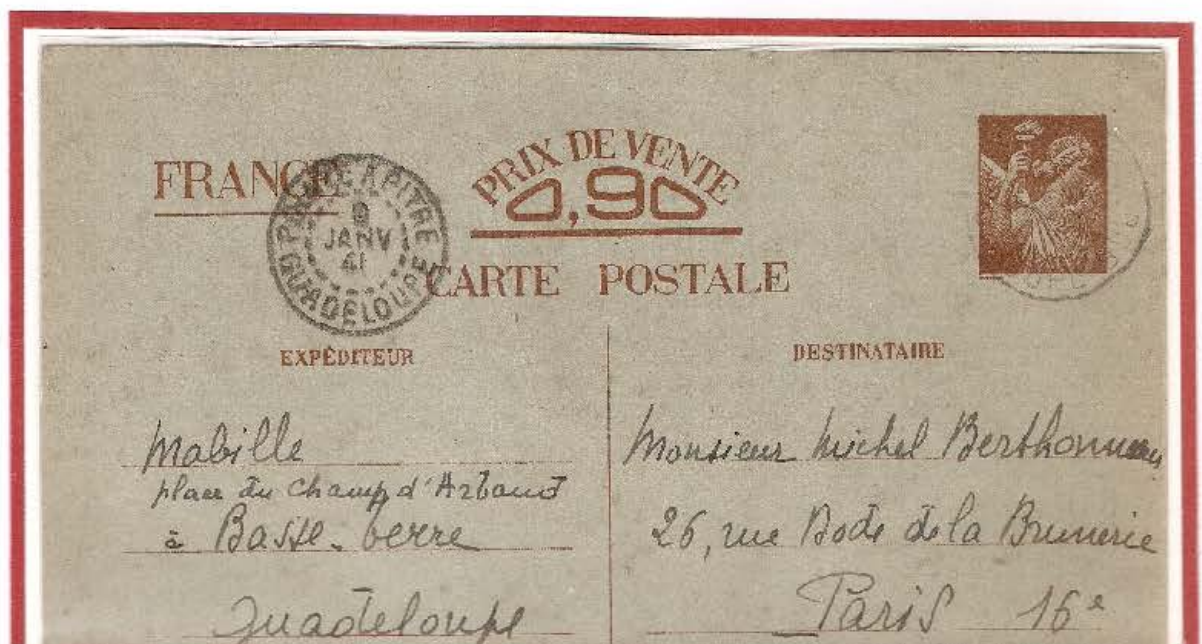 FRANCE
PRIX DE VENTE
0,90
POINTE A PITRE
9
JANV
41
GUADELOUPE
CARTE POSTALE
EXPÉDITEUR
Mabille
place du Champ d'Arbaud
à Basse-terre
Guadeloupe
DESTINATAIRE
Monsieur Michel Berthonneau
26, rue Bode de la Brunerie
Paris 16e